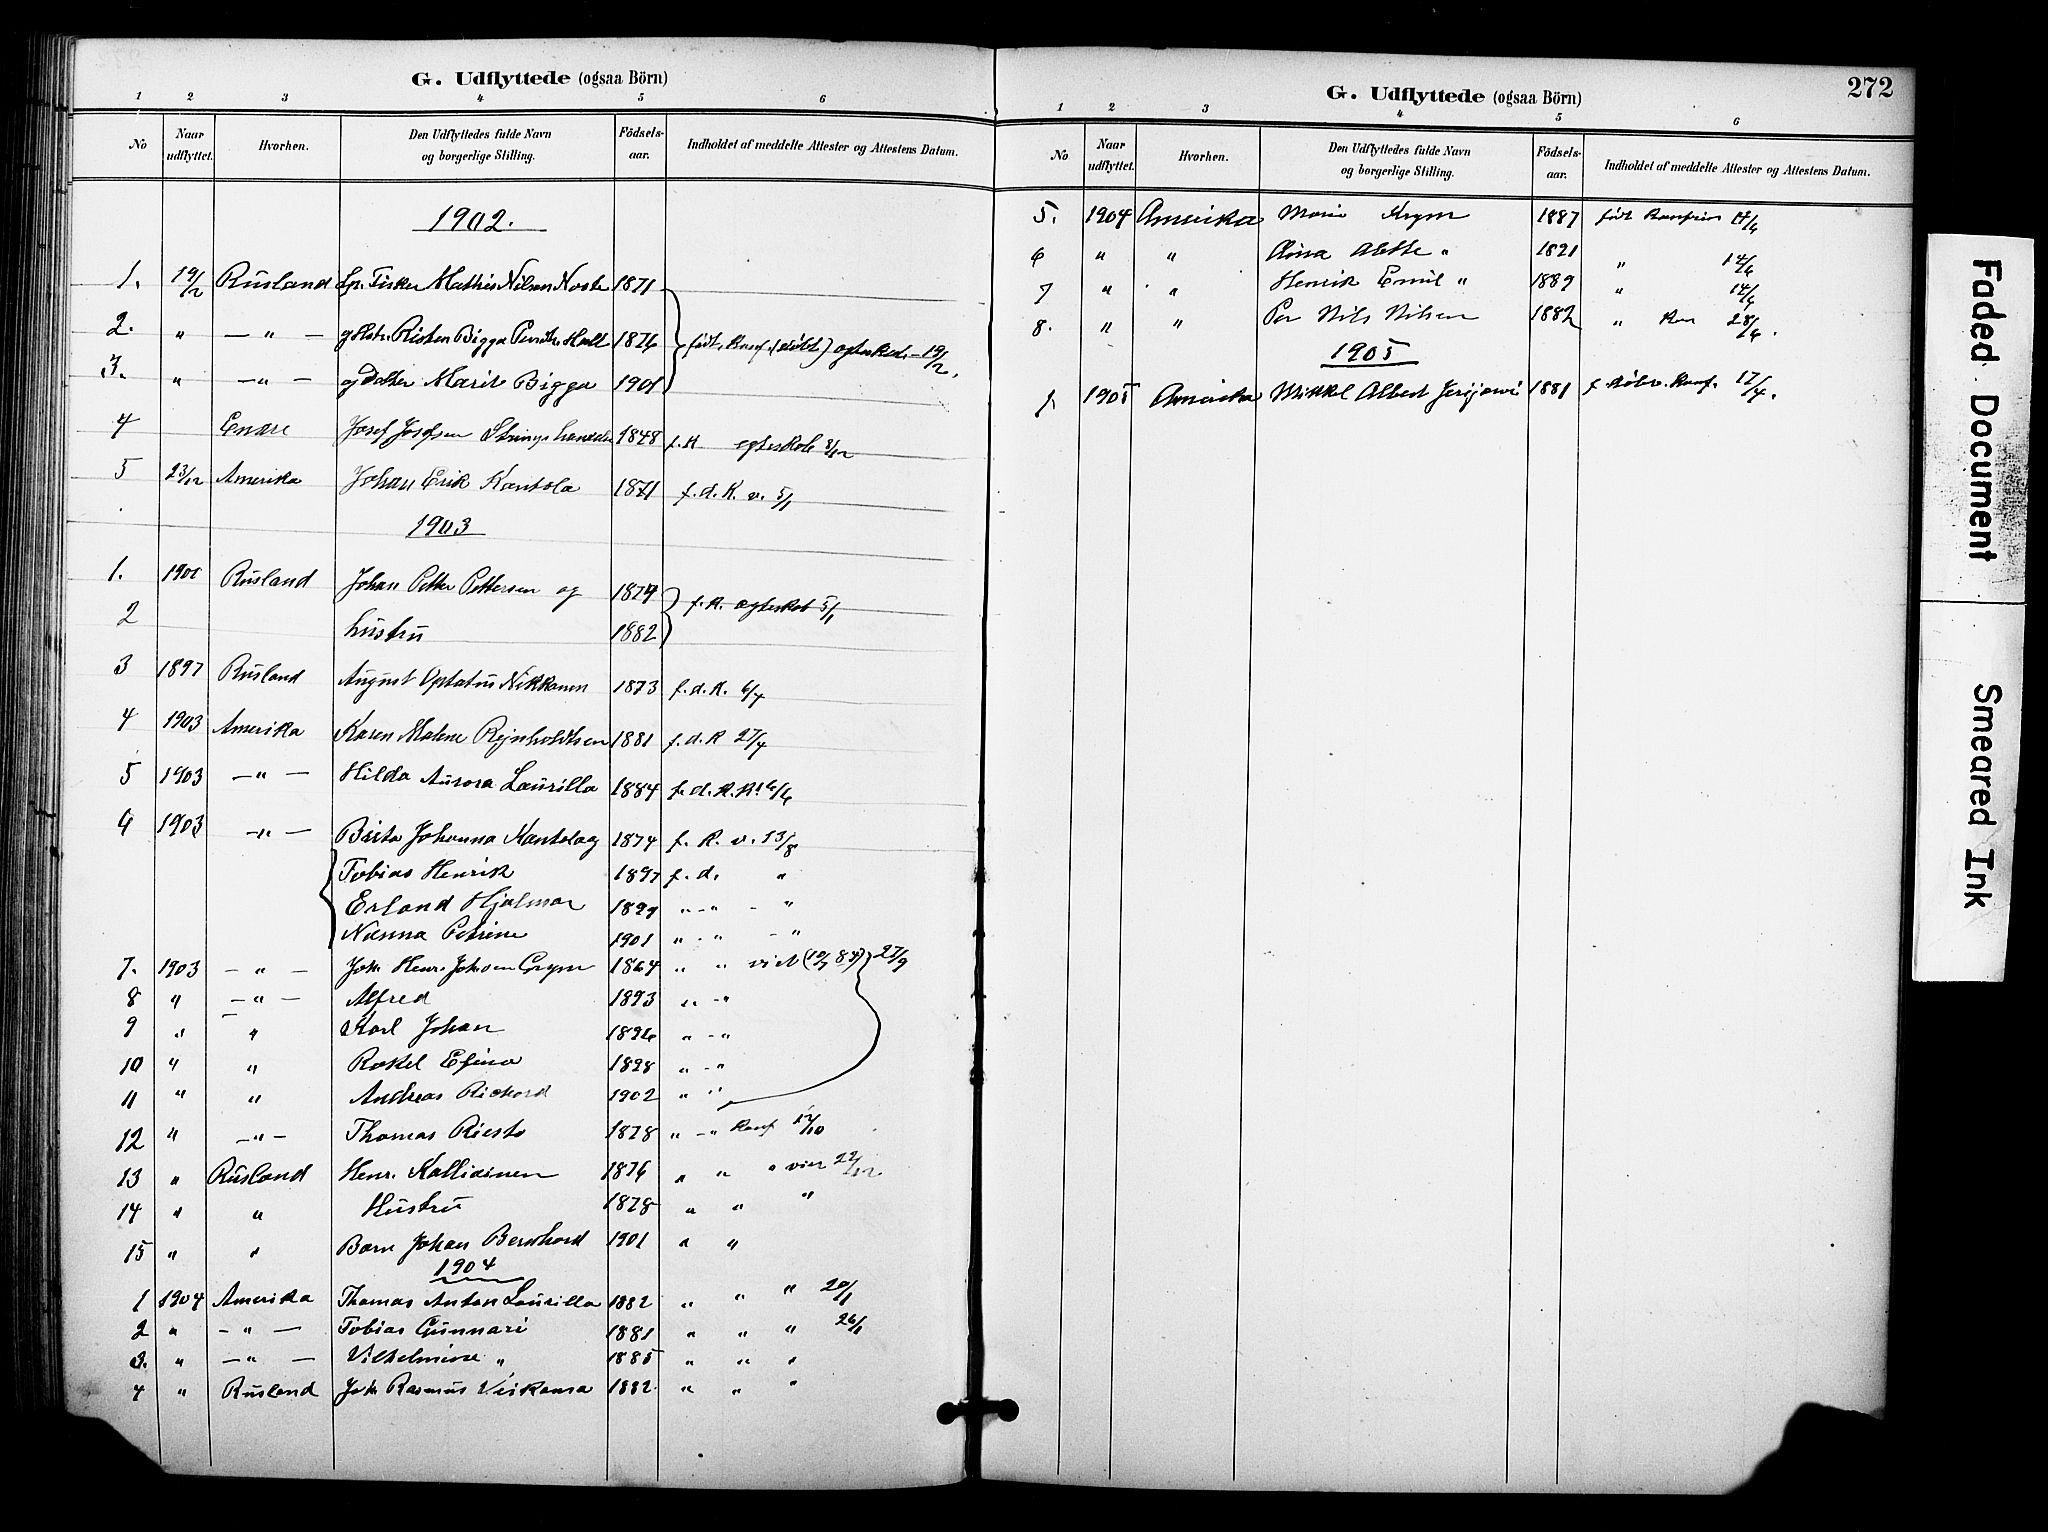 G. Udflyttede (ogsaa Börn)
1 2 3 4 5 6
No Naar udflyttet. Hvorhen. Den Udflyttedes fulde Navn og borgerlige Stilling. Födsels-aar. Indholdet af meddelte Attester og Attestens Datum.
1902.
1. 19/2 Rusland Lp. Fisker Mathis Nilsen 1871
2. " — " — g Hstr. Risten Bigga 1876 födt, Konf. 19/2.
3. " — " — og Datter Marit Bigga 1901
4 Enare Josef Josefsen 1848 f. K 8/12
5 23/12 Amerika Johan Erik Kantola 1871 f. d. K. v. 5/1
1903
1. 1901 Rusland Johan Petter Pettersen og 1874 f. K. 5/1
2 hustru 1882
3 1897 Rusland August Optatus Nikkanen 1873 f. d. K. 6/4
4 1903 Amerika Karen Malene Rejnholdtsen 1881 f. d. K 27/4
5 1903 — " — Hilda Aurora Laurilla 1884 f. d. K. 6/6
6 1903 — " — Brita Johanna Kantola og 1874 f. K. v. 13/8
Tobias Henrik 1897 f. d. "
Erland Hjalmar 1899 " - " - "
Nanna Petrine 1901 " - " - "
7. 1903 — " — Joh. Henr. Johsen Grym 1864 " " 27/9
8 " — " — Alfred 1893 " - "
9 " " Karl Johan 1896 " - "
10 " " Rakel Efina 1898 " - "
11 " " Andreas Richard 1902 " "
12 " — " — Thomas Riesto 1878 " - " Konf 12/10
13 " Rusland Henr. Kallioinen 1876 " " " 22/12
14 " " Hustru 1878 " " "
15 " " Barn Johan Bernhard 1901 " "
1904
1 1904 Amerika Thomas Anton Laurilla 1882 " " " 20/1
2 " — " — Tobias Gunnari 1881 " " " 26/1
3. " — " — Vilhelmine " 1885 " " "
4 " Rusland Joh. Rasmus Niskanen 1882 " " "
G. Udflyttede (ogsaa Börn) 272
1 2 3 4 5 6
No Naar udflyttet. Hvorhen. Den Udflyttedes fulde Navn og borgerlige Stilling. Födsels-aar. Indholdet af meddelte Attester og Attestens Datum.
5. 1904 Amerika Maria Grym 1887 födt 14/6
6 " " Anna " 1821 " 14/6
7 " " Henrik Emil " 1889 " 14/6
8. " " Per Nils Nilsen 1882 " 28/6.
1905
1. 1905 Amerika Mikkel Albert 1881 f. Konf. 17/4.
Faded Document
Smeared Ink